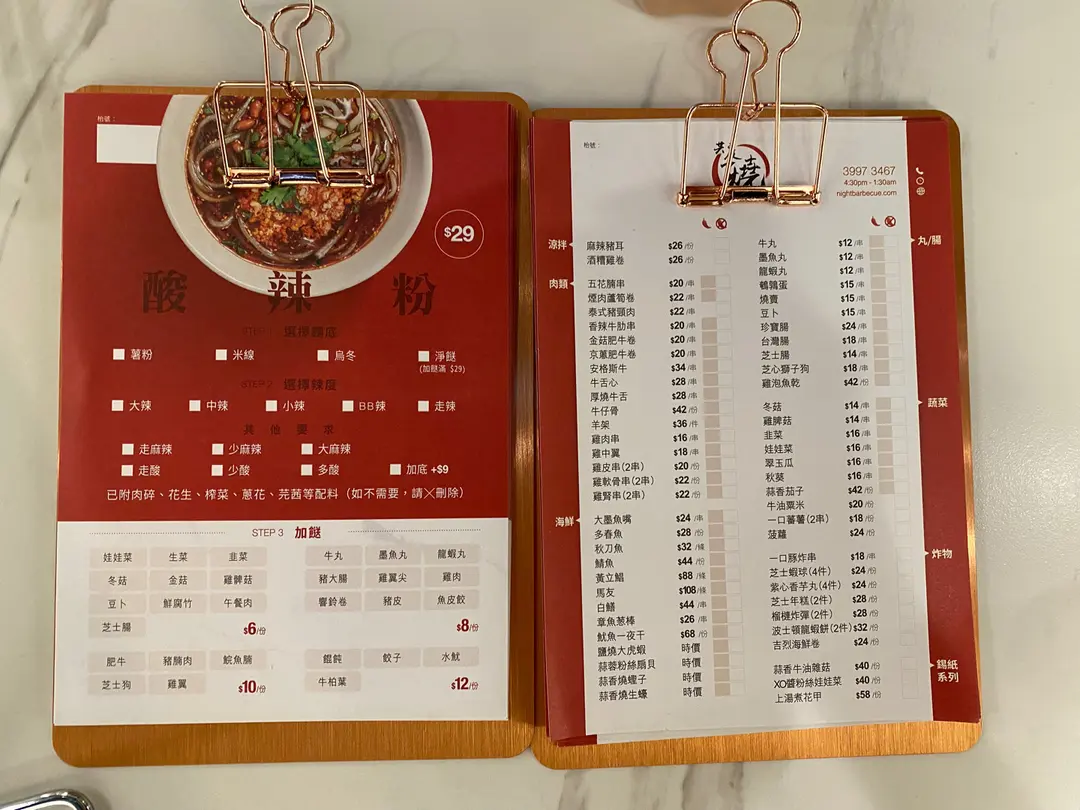 枱號：
$29
酸辣粉
STEP 1 選擇麵底
薯粉 米線 烏冬 淨餸
(加餸滿 $29)
STEP 2 選擇辣度
大辣 中辣 小辣 BB辣 走辣
其他要求
走麻辣 少麻辣 大麻辣
走酸 少酸 多酸 加底 +$9
已附肉碎、花生、榨菜、蔥花、芫茜等配料（如不需要，請╳刪除）
STEP 3 加餸
娃娃菜 生菜 韭菜
冬菇 金菇 雞髀菇
豆卜 鮮腐竹 午餐肉
芝士腸 $6/份
牛丸 墨魚丸 龍蝦丸
豬大腸 雞翼尖 雞肉
響鈴卷 豬皮 魚皮餃
$8/份
肥牛 豬腩肉 鯇魚腩
芝士狗 雞翼 $10/份
餛飩 餃子 水魷
牛柏葉 $12/份
枱號：
燒
3997 3467
4:30pm - 1:30am
nightbarbecue.com
涼拌
麻辣豬耳 $26 /份
酒糟雞卷 $26 /份
肉類
五花腩串 $20 /串
煙肉蘆筍卷 $22 /串
泰式豬頸肉 $22 /串
香辣牛肋串 $20 /串
金菇肥牛卷 $20 /串
京蔥肥牛卷 $20 /串
安格斯牛 $34 /串
牛舌心 $28 /串
厚燒牛舌 $28 /串
牛仔骨 $42 /份
羊架 $36 /件
雞肉串 $16 /串
雞中翼 $18 /串
雞皮串(2串) $20 /份
雞軟骨串(2串) $22 /份
雞腎串(2串) $22 /份
海鮮
大墨魚嘴 $24 /串
多春魚 $28 /份
秋刀魚 $32 /條
鯖魚 $44 /份
黃立鯧 $88 /條
馬友 $108 /條
白鱔 $44 /串
章魚蔥棒 $26 /串
魷魚一夜干 $68 /份
鹽燒大虎蝦 時價
蒜蓉粉絲扇貝 時價
蒜香燒蟶子 時價
蒜香燒生蠔 時價
丸/腸
牛丸 $12 /串
墨魚丸 $12 /串
龍蝦丸 $12 /串
鵪鶉蛋 $15 /串
燒賣 $15 /串
豆卜 $15 /串
珍寶腸 $24 /串
台灣腸 $18 /串
芝士腸 $14 /串
芝心獅子狗 $18 /串
雞泡魚乾 $42 /份
蔬菜
冬菇 $14 /串
雞髀菇 $14 /串
韭菜 $16 /串
娃娃菜 $16 /串
翠玉瓜 $16 /串
秋葵 $16 /串
蒜香茄子 $42 /份
牛油粟米 $20 /份
一口蕃薯(2串) $18 /份
菠蘿 $24 /份
炸物
一口豚炸串 $18 /串
芝士蝦球(4件) $24 /份
紫心香芋丸(4件) $24 /份
芝士年糕(2件) $28 /份
榴槤炸彈(2件) $28 /份
波士頓龍蝦餅(2件) $32 /份
吉烈海鮮卷 $24 /份
錫紙系列
蒜香牛油雜菇 $40 /份
XO醬粉絲娃娃菜 $40 /份
上湯煮花甲 $58 /份